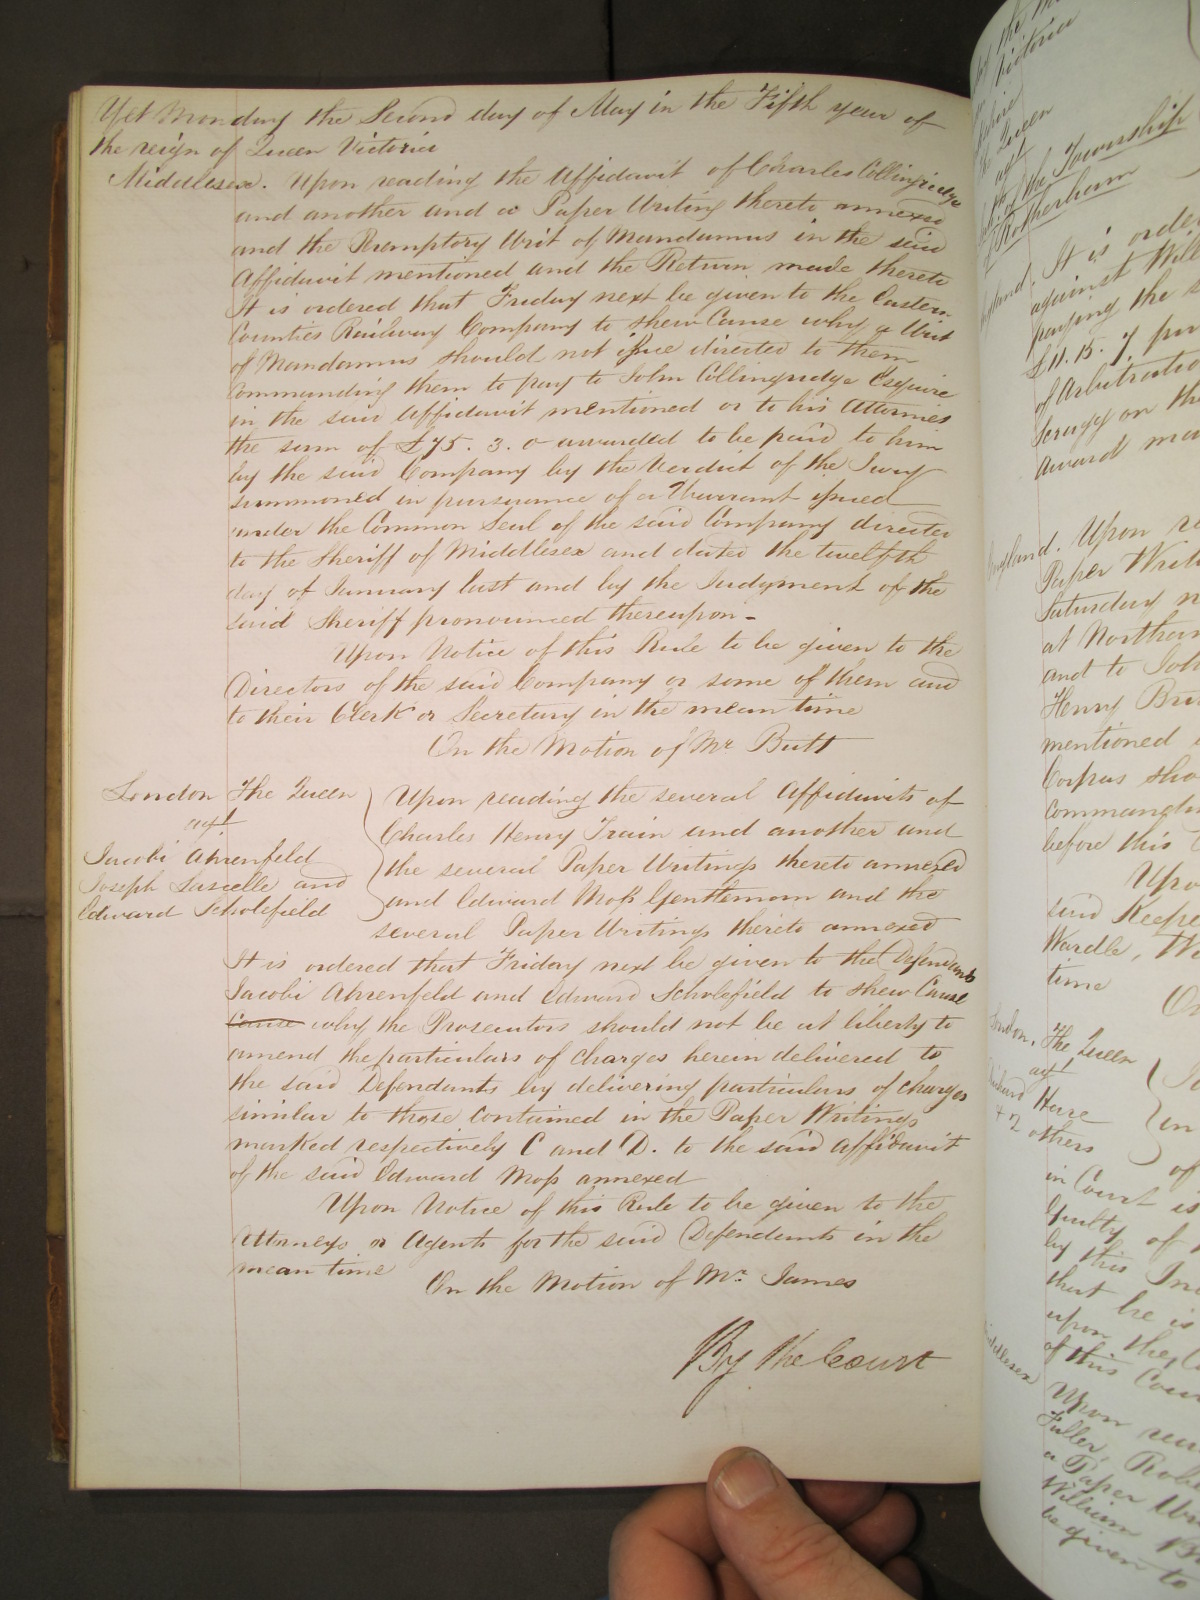 Yet Monday the Second day of May in the Fifth year of
the reign of Queen Victoria
Middlesex. Upon reading the Affidavit of Charles Collingridge
and another and a Paper Writing thereto annexed
and the Peremptory Writ of Mandamus in the said
Affidavit mentioned and the Return made thereto
It is ordered that Friday next be given to the Eastern
Counties Railway Company to shew Cause why a Writ
of Mandamus should not issue directed to them
Commanding them to pay to John Collingridge Esquire
in the said Affidavit mentioned or to his Attornies
the sum of £75. 3. 0 awarded to be paid to him
by the said Company by the Verdict of the Jury
summoned in pursuance of a Warrant issued
under the Common Seal of the said Company directed
to the Sheriff of Middlesex and dated the twelfth
day of January last and by the Judgment of the
said Sheriff pronounced thereupon-
Upon Notice of this Rule to be given to the
Directors of the said Company or some of them and
to their Clerk or Secretary in the mean time
On the Motion of Mr Butt
London The Queen
agt
Jacobi Ahrenfeld
Joseph Lascelle and
Edward Scholefield
Upon reading the several Affidavits of
Charles Henry Train and another and
the several Paper Writings thereto annexed
and Edward Moss Gentleman and the
several Paper Writings thereto annexed
It is ordered that Friday next be given to the Defendants
Jacobi Ahrenfeld and Edward Scholefield to shew Cause
Cause why the Prosecutors should not be at liberty to
amend the particulars of charges herein delivered to
the said Defendants by delivering particulars of charges
similar to those contained in the Paper Writings
marked respectively C and D. to the said affidavit
of the said Edward Moss annexed
Upon Notice of this Rule to be given to the
Attorneys or Agents for the said Defendants in the
mean time
On the Motion of Mr. James
By the Court
Victoria
the Queen
agt
of the Township
of Rotherham
It is
against
paying the
£11. 15. 7
of
on the
award
England. Upon
Paper
Saturday
at
and to
Henry
mentioned
Corpus
before this
said
Wardle,
time
London. The Queen
agt
Hare
others
in
of
in Court is
guilty of
by this
that he is
upon the
of this
Middlesex
Upon
Fuller,
a Paper
William
be given to